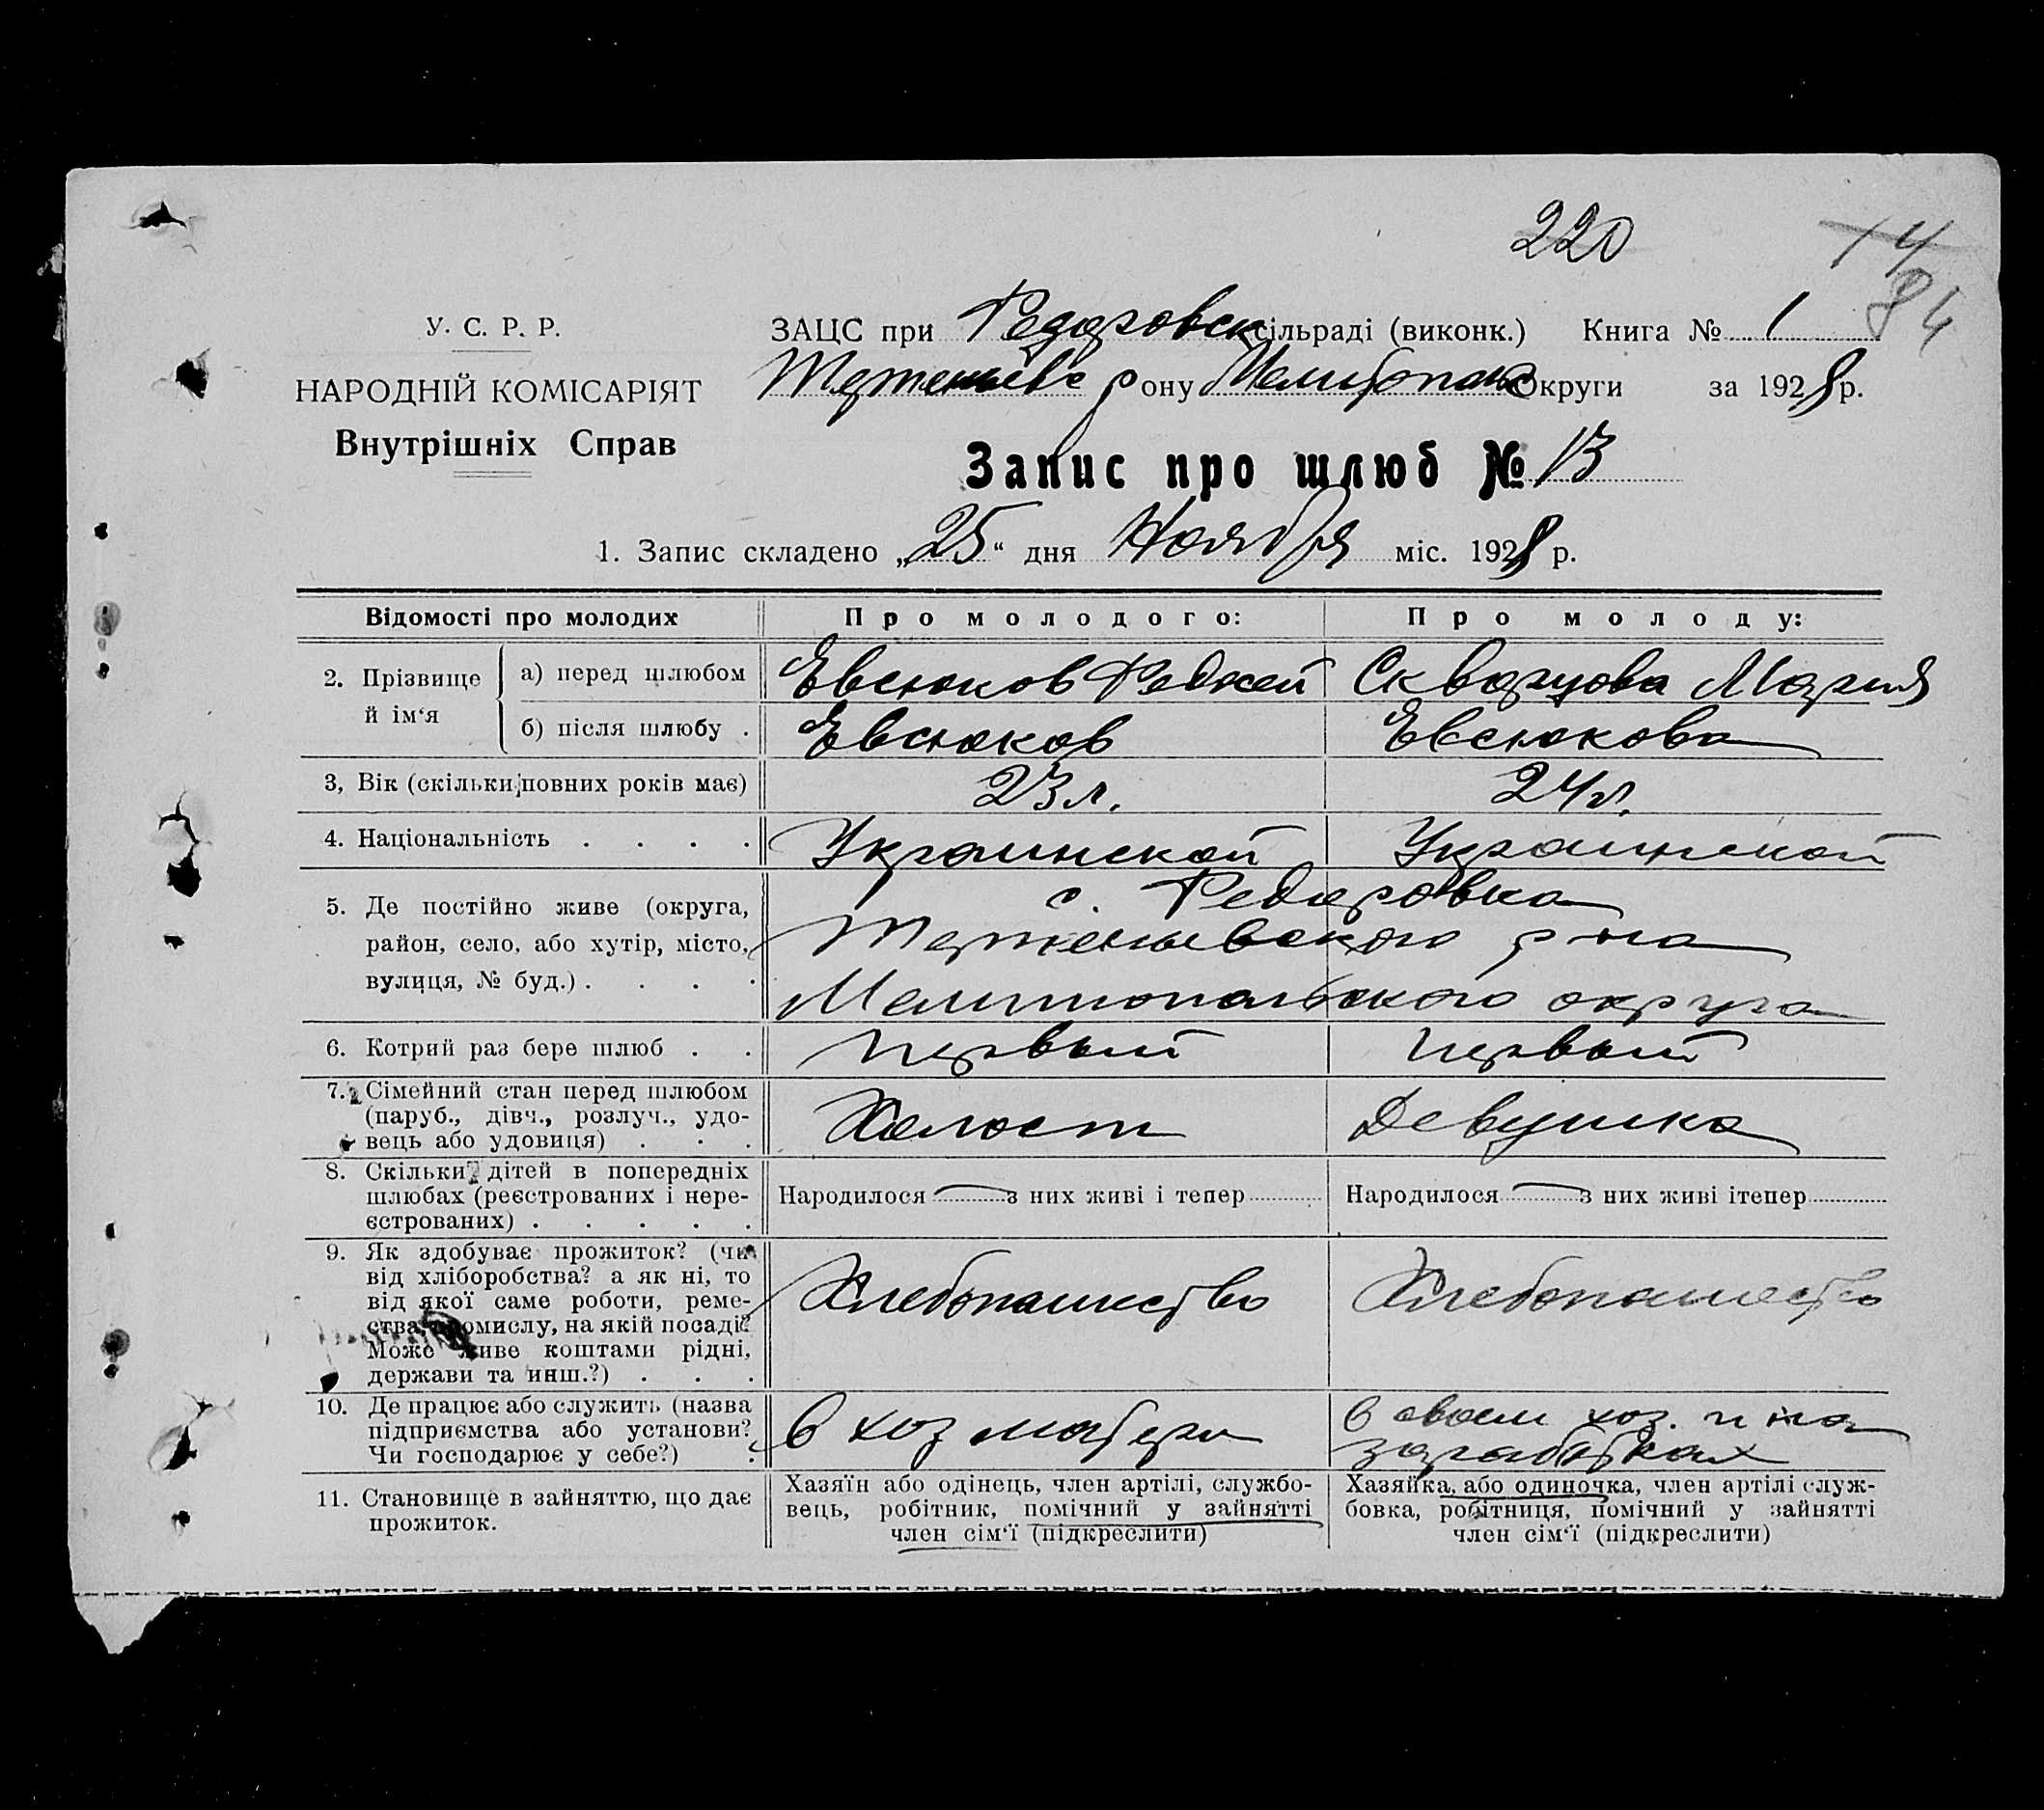 220
14
84
У. С. Р. Р.
НАРОДНІЙ КОМІСАРІЯТ
Внутрішніх Справ
ЗАЦС при Федоровск сільраді (виконк.) Книга № 1
рону Мелитопол Округи за 1928 р.
Запис про шлюб № 13
1. Запис складено „25“ дня Ноября міс. 1928 р.
Відомості про молодих Про молодого: Про молоду:
2. Прізвище й ім‘я а) перед шлюбом Евсюков Скварцова Мария
б) після шлюбу . Евсюков Евсюкова
3, Вік (скільки повних років має) 23 л. 24 л.
4. Національність . . . . Украинской Украинской
5. Де постійно живе (округа, с. Федоровка
район, село, або хутір, місто, р-на
вулиця, № буд.) . . . . Мелитопольского округа
6. Котрий раз бере шлюб . . первый первый
7. Сімейний стан перед шлюбом
(паруб., дівч., розлуч., удо-
вець або удовиця) . . . Холост Девушка
8. Скільки дітей в попередніх
шлюбах (реєстрованих і нере-
єстрованих) . . . . . Народилося — з них живі і тепер Народилося — з них живі ітепер
9. Як здобуває прожиток? (чи
від хліборобства? а як ні, то
від якої саме роботи, реме-
ства, промислу, на якій посаді?
Може живе коштами рідні,
держави та инш.?) . . . Хлебопашество Хлебопашество
10. Де працює або служить (назва
підприємства або установи?
Чи господарює у себе?) . в хоз матери в своем хоз. и на
заработках
11. Становище в зайняттю, що дає
прожиток.
Хазяїн або одінець, член артілі, службо-
вець, робітник, помічний у зайнятті
член сім‘ї (підкреслити)
Хазяйка, або одиночка, член артілі служ-
бовка, робітниця, помічний у зайнятті
член сім‘ї (підкреслити)